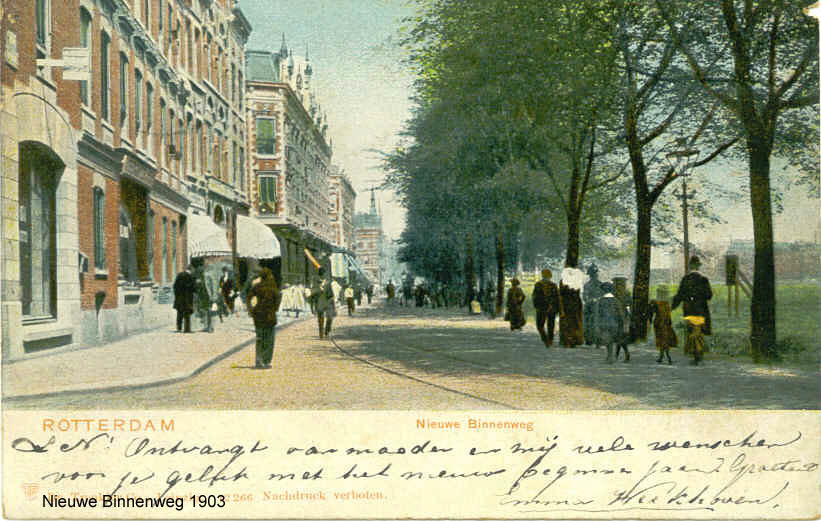 ROTTERDAM
Nieuwe Binnenweg
L. N! Ontvangt van moeder en mij vele wenschen
voor je geluk met het nieuw begonnen jaar. Groetend
Emma Wickhoven.
2266 Nachdruck verboten.
Nieuwe Binnenweg 1903